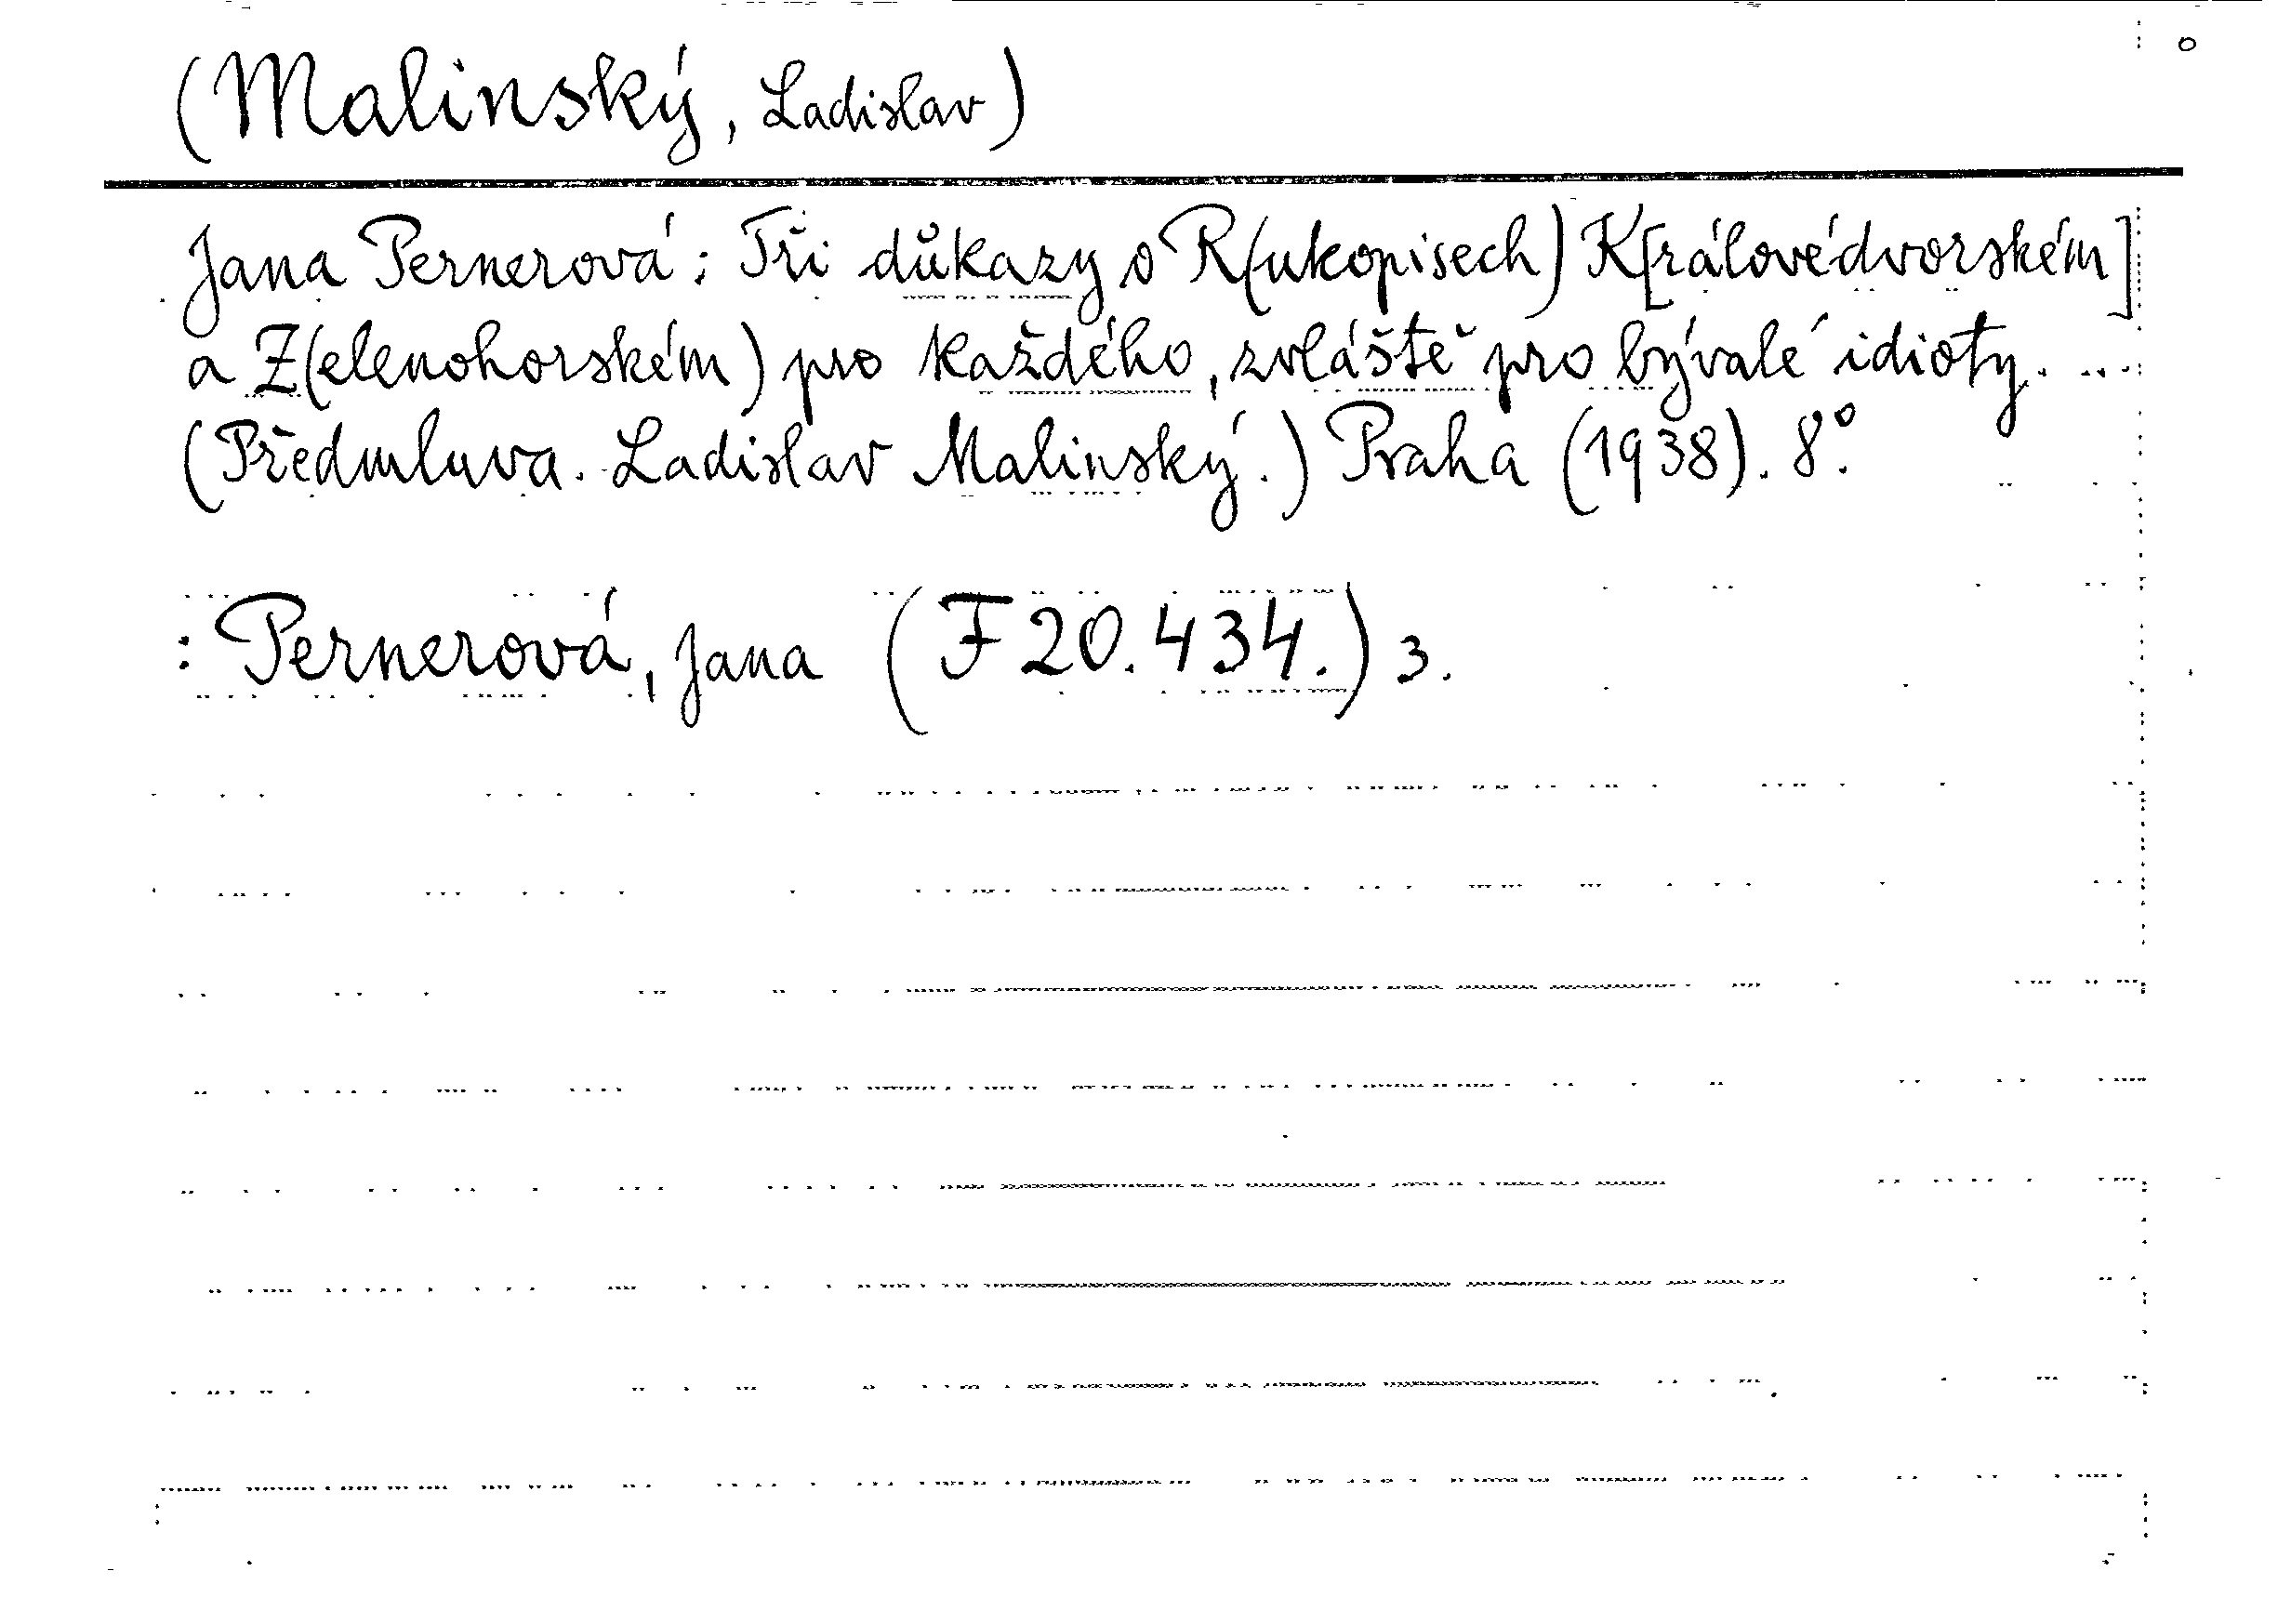 (Malinský, Ladislav)
Jana Pernerová: Tři důkazy o R(ukopisech) K[rálovédvorském]
a Z(elenohorském) pro každého, zvláště pro bývalé idioty. ...
(Předmluva. Ladislav Malinský.) Praha (1938). 8°.
: Pernerová, Jana (F 20.434.) 3.